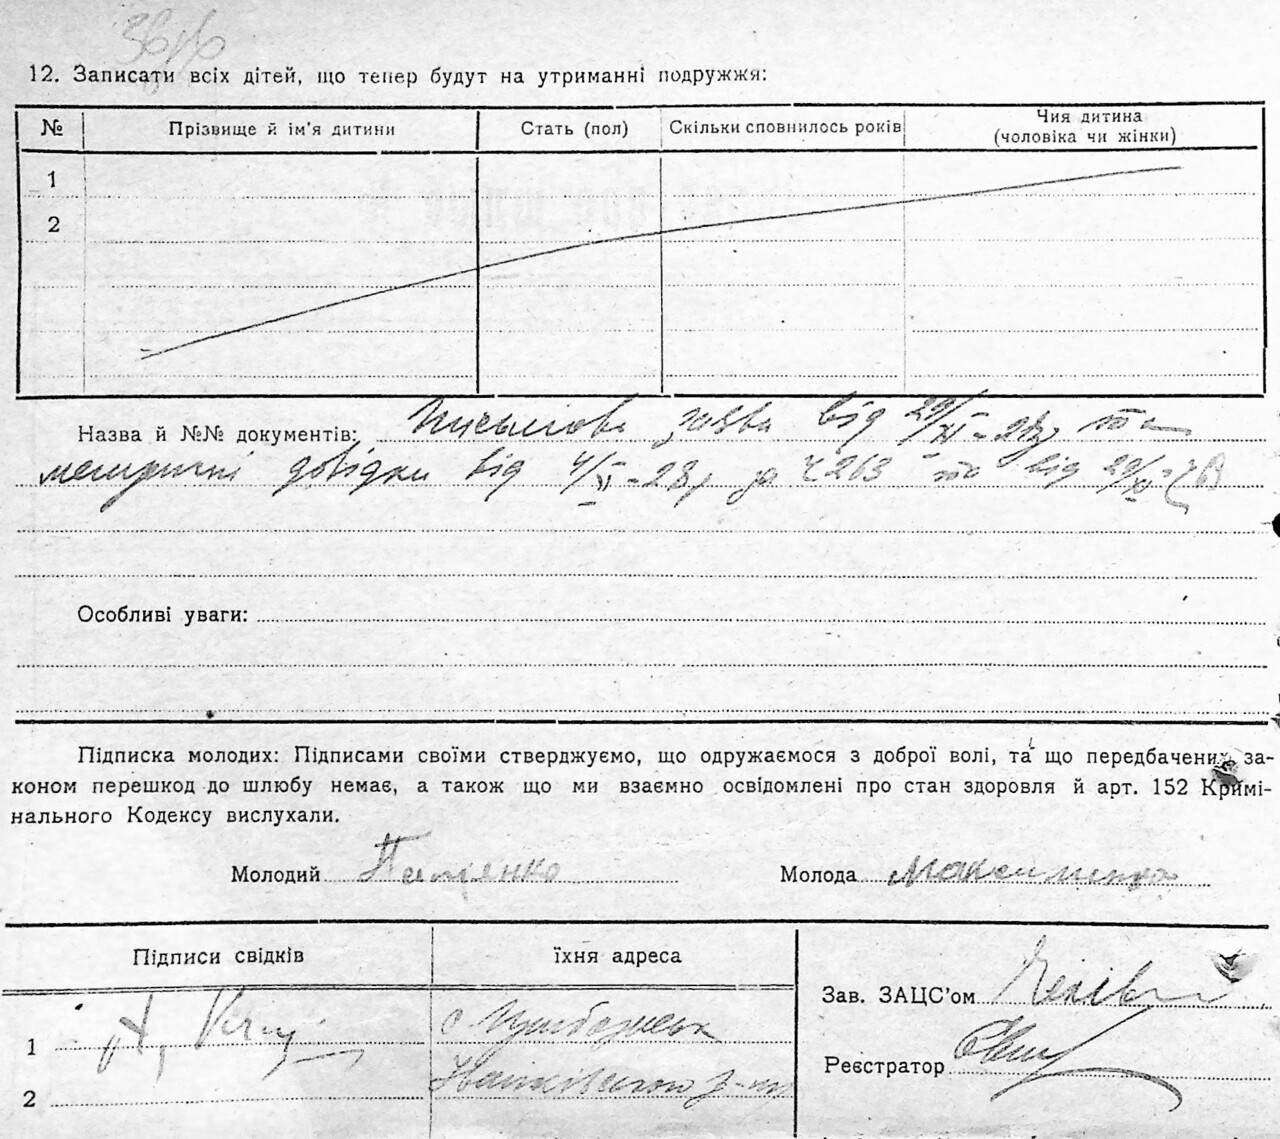 12. Записати всіх дітей, що тепер будут на утриманні подружжя:
№ Прізвище й ім'я дитини Стать (пол) Скільки сповнилось років Чия дитина
(чоловіка чи жінки)
1
2
Назва й №№ документів: заява від 29/XI-28р та
довідки від 4/VI-28р за Ч 263 та від 29/XI
Особливі уваги:
Підписка молодих: Підписами своїми стверджуємо, що одружаємося з доброї волі, та що передбачених за-
коном перешкод до шлюбу немає, а також що ми взаємно освідомлені про стан здоровля й арт. 152 Кримі-
нального Кодексу вислухали.
Молодий Молода
Підписи свідків їхня адреса
Зав. ЗАЦС'ом
1 с.
Реєстратор
2